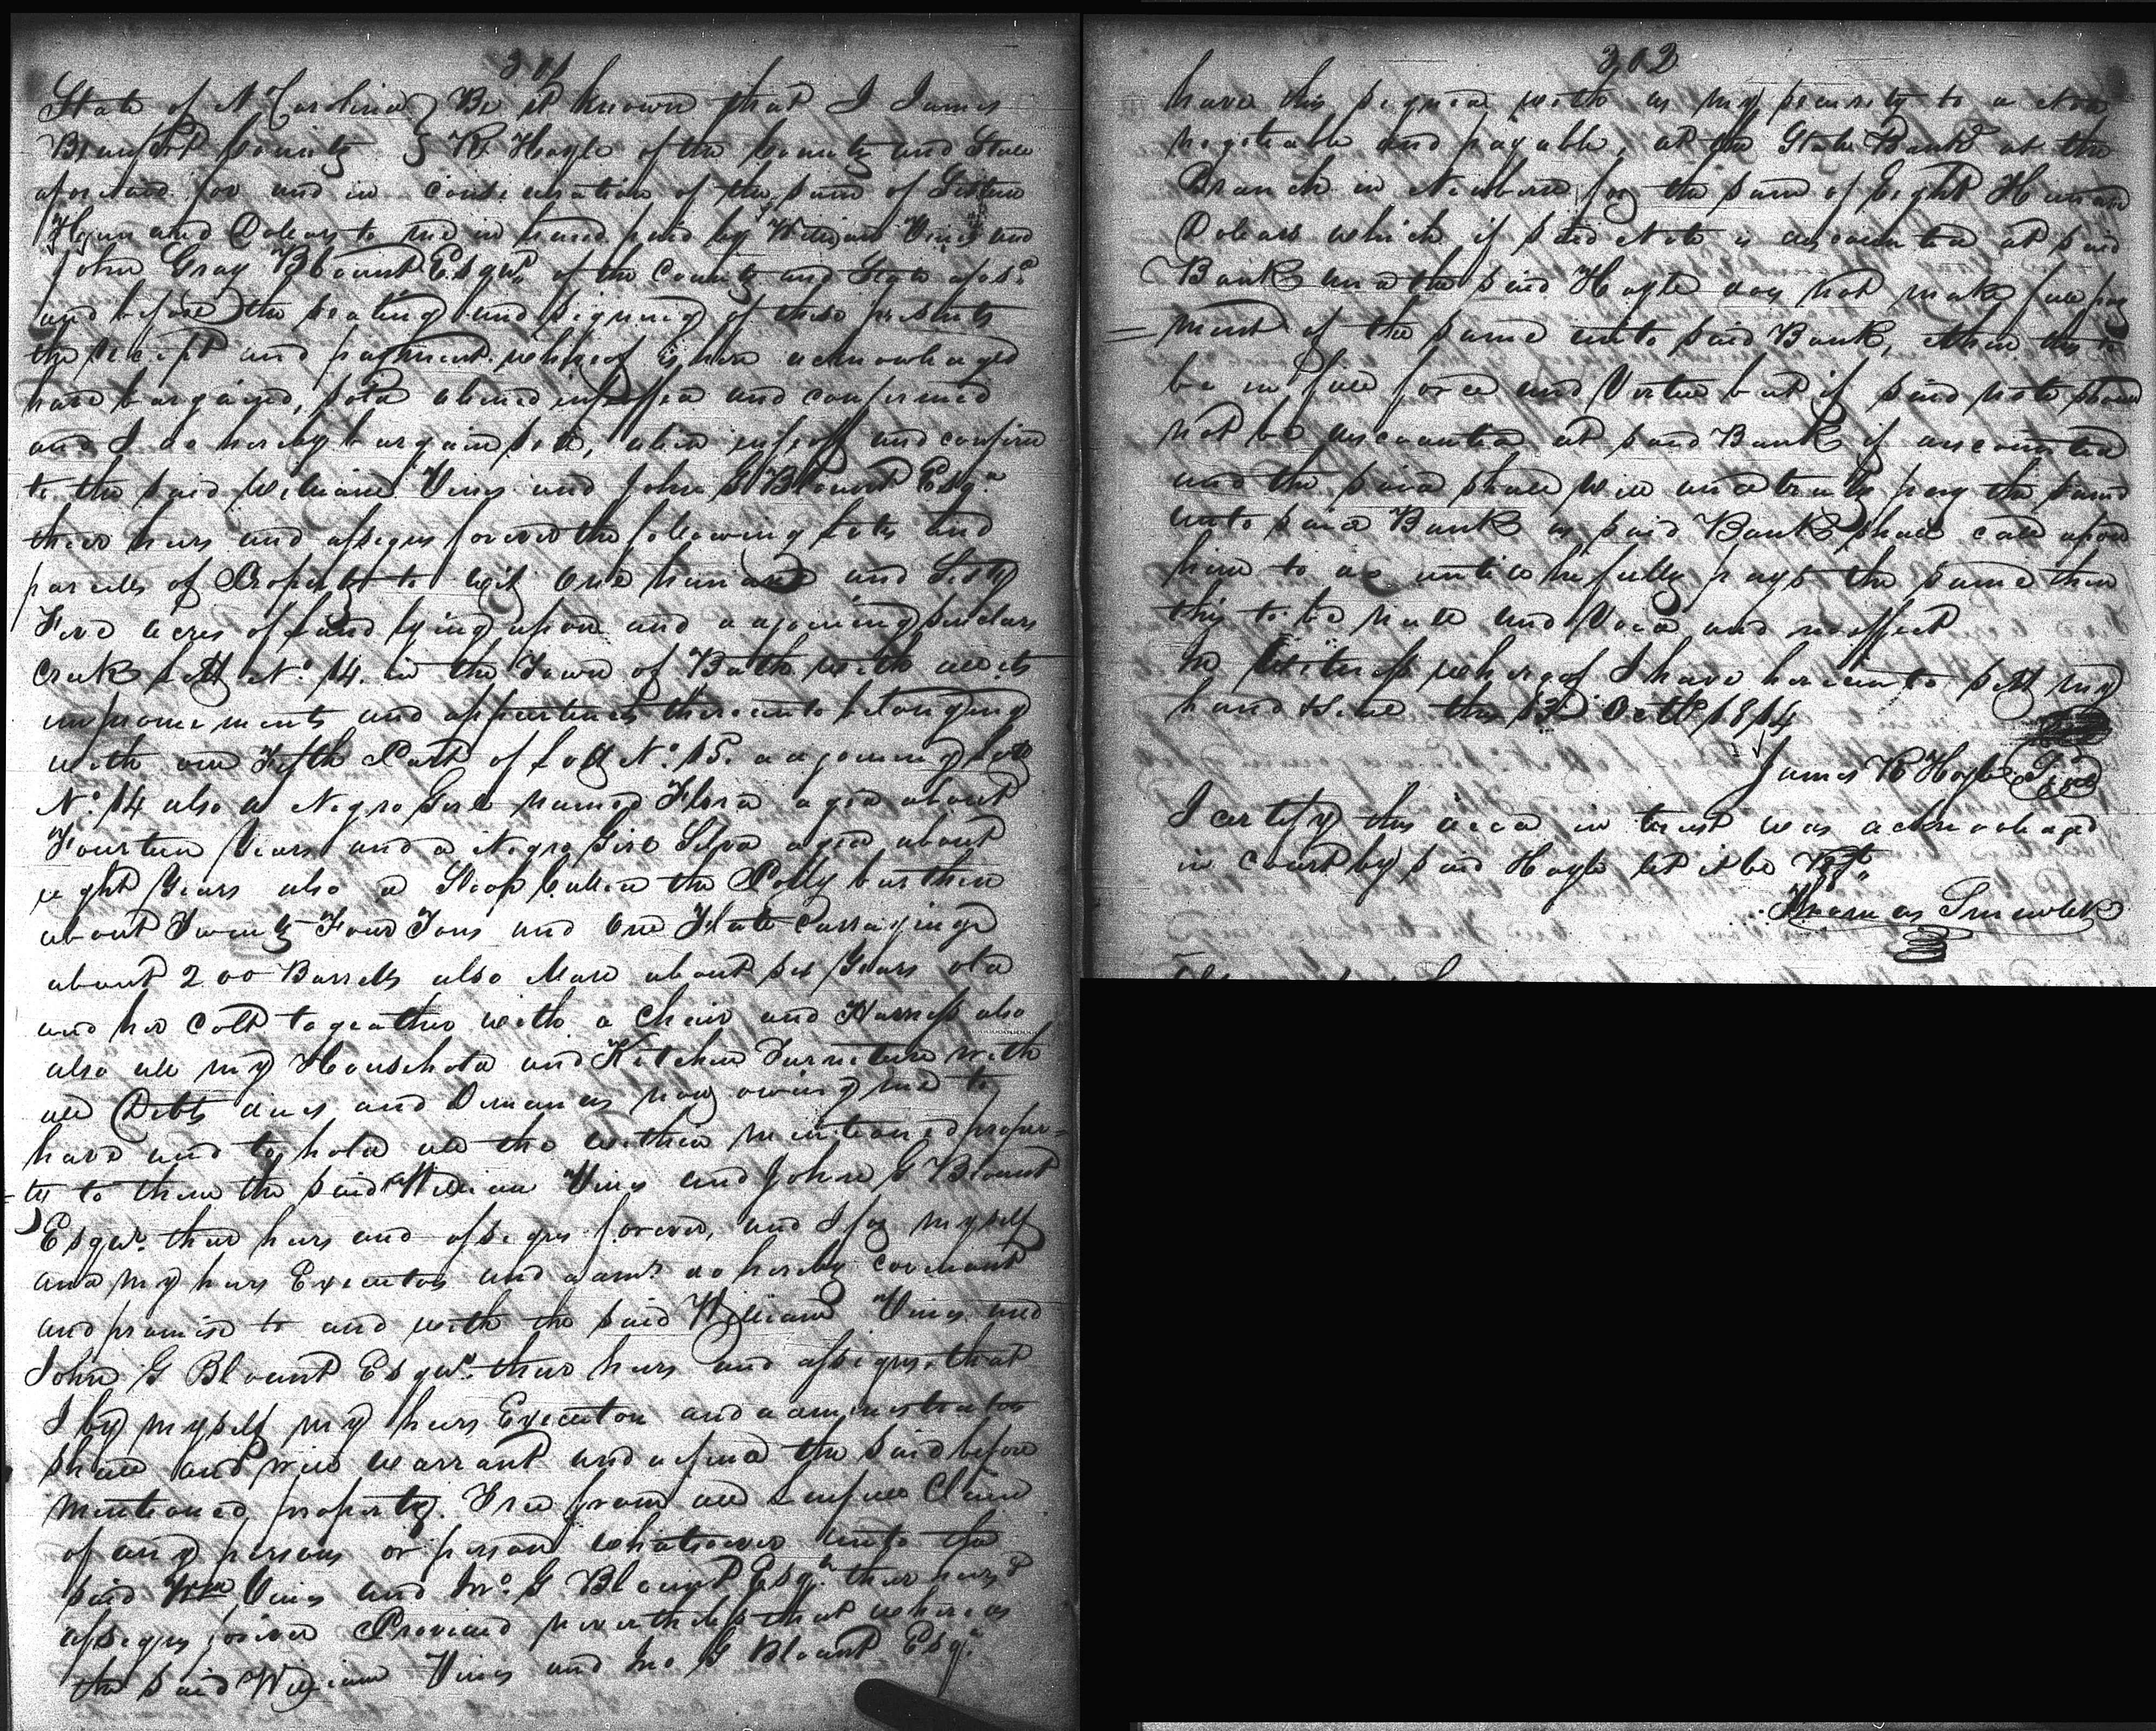 301
State of N Carolina } Be it known that I James
Beaufort County } R Hoyle of the County and State
aforesaid for and in consideration of the sum of
Thousand Dollars to me in hand paid by William Vines and
John Gray Blount Esqrs of the County and State afosd
and before the sealing and signing of these presents
the receipt and payment whereof is here acknowledged
have bargained, sold aliened infeoffed and confirmed
and I do hereby bargain sell, alien enfeoff and confirm
to the said William Vines and John G Blount Esqr
their heirs and assigns forever the following Lots and
parcells of Property to wit One hundred and Sixty
Five acres of Land lying upon and adjoining
Creek Lott No. 14. in the Town of Bath with all its
improvements and thereunto belonging
with one Fifth Part of Lott No. 15. adjoining Lott
No. 14 also a Negro Girl named Flora aged about
Fourteen Years and a Negro Girl Silva aged about
eight Years also a Sloop Called the Polly burthen
about Twenty Four Tons and One Flatt Carrying
about 200 Barrells also Mare about six Years old
and her Colt togeather with a Chair and Harness also
also all my Household and Kitchen Furniture with
all Debts dues and Demands now owing me to
have and to hold all the within mentioned proper=
=ty to them the said William Vines and John G Blount
Esqrs. their heirs and assigns forever, and I for myself
and my heirs Executors and admrs do hereby covenant
and promise to and with the said William Vines and
John G Blount Esqrs. their heirs and assigns, that
I by myself my heirs Executors and administrators
shall and will warrant and defend the said before
mentioned property. Free from all Lawfull Claim
of any persons or person whatsoever unto the
said Wm Vines and Jno. G Blount Esqr. their heirs &
assigns forever Provided nevertheless that whereas
the said William Vines and Jno G Blount Esqr.
302
have this signed with as my security to a Note
negotiable and payable, at the State Bank at the
Branch in Newbern for the sum of Eight Hundred
Dollars which if said Note is discounted at said
Bank and the said Hoyle does not make full pay
= ment of the same unto said Bank, then this to
be in full force and Virtue but if said note should
not be discounted at said Bank if discounted
and the said shall well and truly pay the same
unto said Bank as said Bank shall call upon
him to do untill he fully pays the same then
this to be null and Void and no effect
In Witness whereof I have hereunto sett my
hand & Seal this 13 Octr 1814
James R Hoyle Seal
I certify this deed in trust was acknowledged
in Court by said Hoyle let it be Regd.
Thomas Smaw Clk